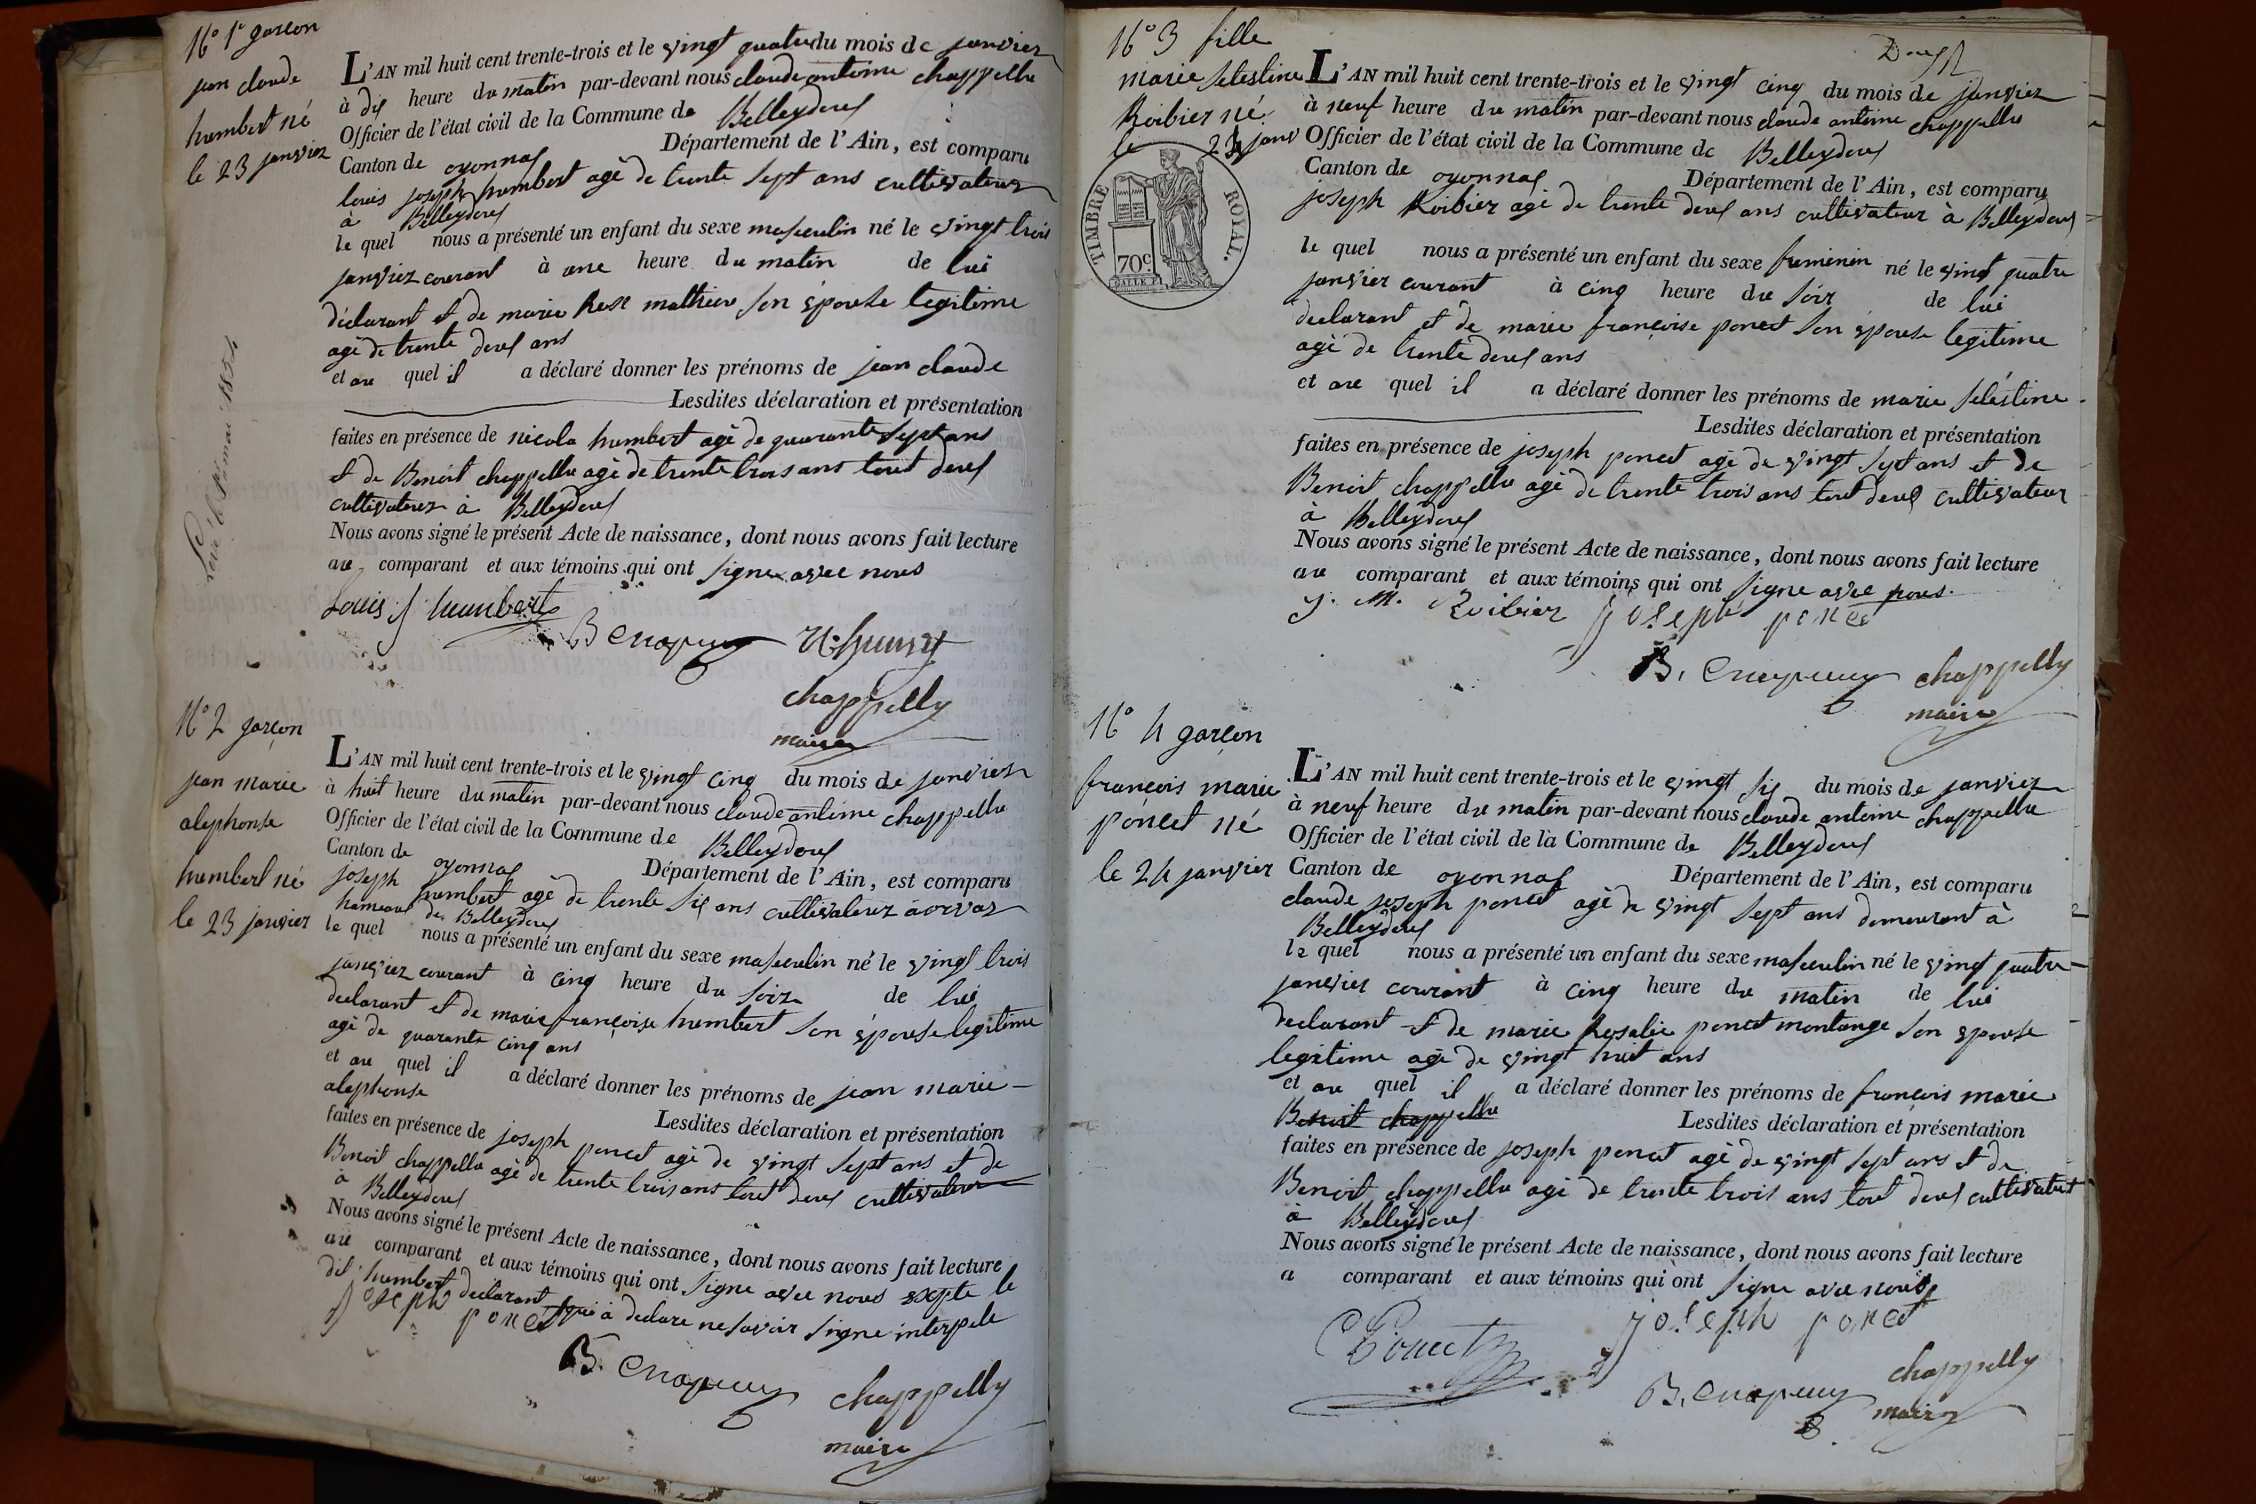 N° 1er garcon
jean claude
humbert né
le 23 janvier
L'AN mil huit cent trente-trois et le vingt quatre du mois de janvier
à dix heure du matin par-devant nous claude antoine chappellu
Officier de l'état civil de la Commune de Belleydoux
Canton de oyonnax Département de l'Ain, est comparu
louis joseph humbert agé de trente sept ans cultivateur
à Belleydoux
le quel nous a présenté un enfant du sexe masculin né le vingt trois
janvier courant à une heure du matin de lui
déclarant et de marie Rose mathieu son épouse legitime
agé de trente deux ans
et au quel il a déclaré donner les prénoms de jean claude
Lesdites déclaration et présentation
faites en présence de nicola humbert agé de quarante sept ans
et de Benoit chappellu agé de trente trois ans tout deux
cultivateur à Belleydoux
Nous avons signé le présent Acte de naissance, dont nous avons fait lecture
au comparant et aux témoins qui ont signe avec nous
Louis J humbert
chappelly
maire
N° 2 garçon
jean marie
alephonse
humbert né
le 23 janvier
L'AN mil huit cent trente-trois et le vingt cinq du mois de janvier
à huit heure du matin par-devant nous claude antoine chappellu
Officier de l'état civil de la Commune de Belleydoux
Canton de oyonnax Département de l'Ain, est comparu
joseph humbert agé de trente six ans cultivateur à orvaz
hameau de Belleydoux
le quel nous a présenté un enfant du sexe masculin né le vingt trois
janvier courant à cinq heure du soir de lui
declarant et de marie françoise humbert son épouse legitime
agé de quarante cinq ans
et au quel il a déclaré donner les prénoms de jean marie
alephonse
Lesdites déclaration et présentation
faites en présence de joseph poncet agé de vingt sept ans et de
Benoit chappellu agé de trente trois ans tout deux cultivateur
à Belleydoux
Nous avons signé le présent Acte de naissance, dont nous avons fait lecture
au comparant et aux témoins qui ont signe avec nous exepte le
dit humbert declarant qui à declare ne savoir signe interpele
joseph poncet
chappelly
maire
N° 3 fille
marie selestine
Roibier né
le 24 janv
TIMBRE ROYAL.
70c.
L'AN mil huit cent trente-trois et le vingt cinq du mois de janvier
à neuf heure du matin par-devant nous claude antoine chappellu
Officier de l'état civil de la Commune de Belleydoux
Canton de oyonnax Département de l'Ain, est comparu
joseph Roibier agé de trente deux ans cultivateur à Belleydoux
le quel nous a présenté un enfant du sexe feminin né le vingt quatre
janvier courant à cinq heure du soir de lui
declarant et de marie françoise poncet son épouse legitime
agé de trente deux ans
et au quel il a déclaré donner les prénoms de marie seléstine
Lesdites déclaration et présentation
faites en présence de joseph poncet agé de vingt sept ans et de
Benoit chappellu agé de trente trois ans tout deux cultivateur
à Belleydoux
Nous avons signé le présent Acte de naissance, dont nous avons fait lecture
au comparant et aux témoins qui ont signe avec nous.
j. M. Roibier joseph poncet
chappelly
maire
N° 4 garçon
françois marie
poncet né
le 24 janvier
L'AN mil huit cent trente-trois et le vingt six du mois de janvier
à neuf heure du matin par-devant nous claude antoine chappellu
Officier de l'état civil de la Commune de Belleydoux
Canton de oyonnax Département de l'Ain, est comparu
claude joseph poncet agé de vingt sept ans demeurant à
Belleydoux
le quel nous a présenté un enfant du sexe masculin né le vingt quatre
janvier courant à cinq heure du matin de lui
declarant et de marie Rosalie poncet montange son epouse
legitime agé de vingt huit ans
et au quel il a déclaré donner les prénoms de françois marie
Benoit chappellu
Lesdites déclaration et présentation
faites en présence de joseph poncet agé de vingt sept ans et de
Benoit chappellu agé de trente trois ans tout deux cultivateur
à Belleydoux
Nous avons signé le présent Acte de naissance, dont nous avons fait lecture
a comparant et aux témoins qui ont signe avec nous
Poncet joseph poncet
chappelly
maire